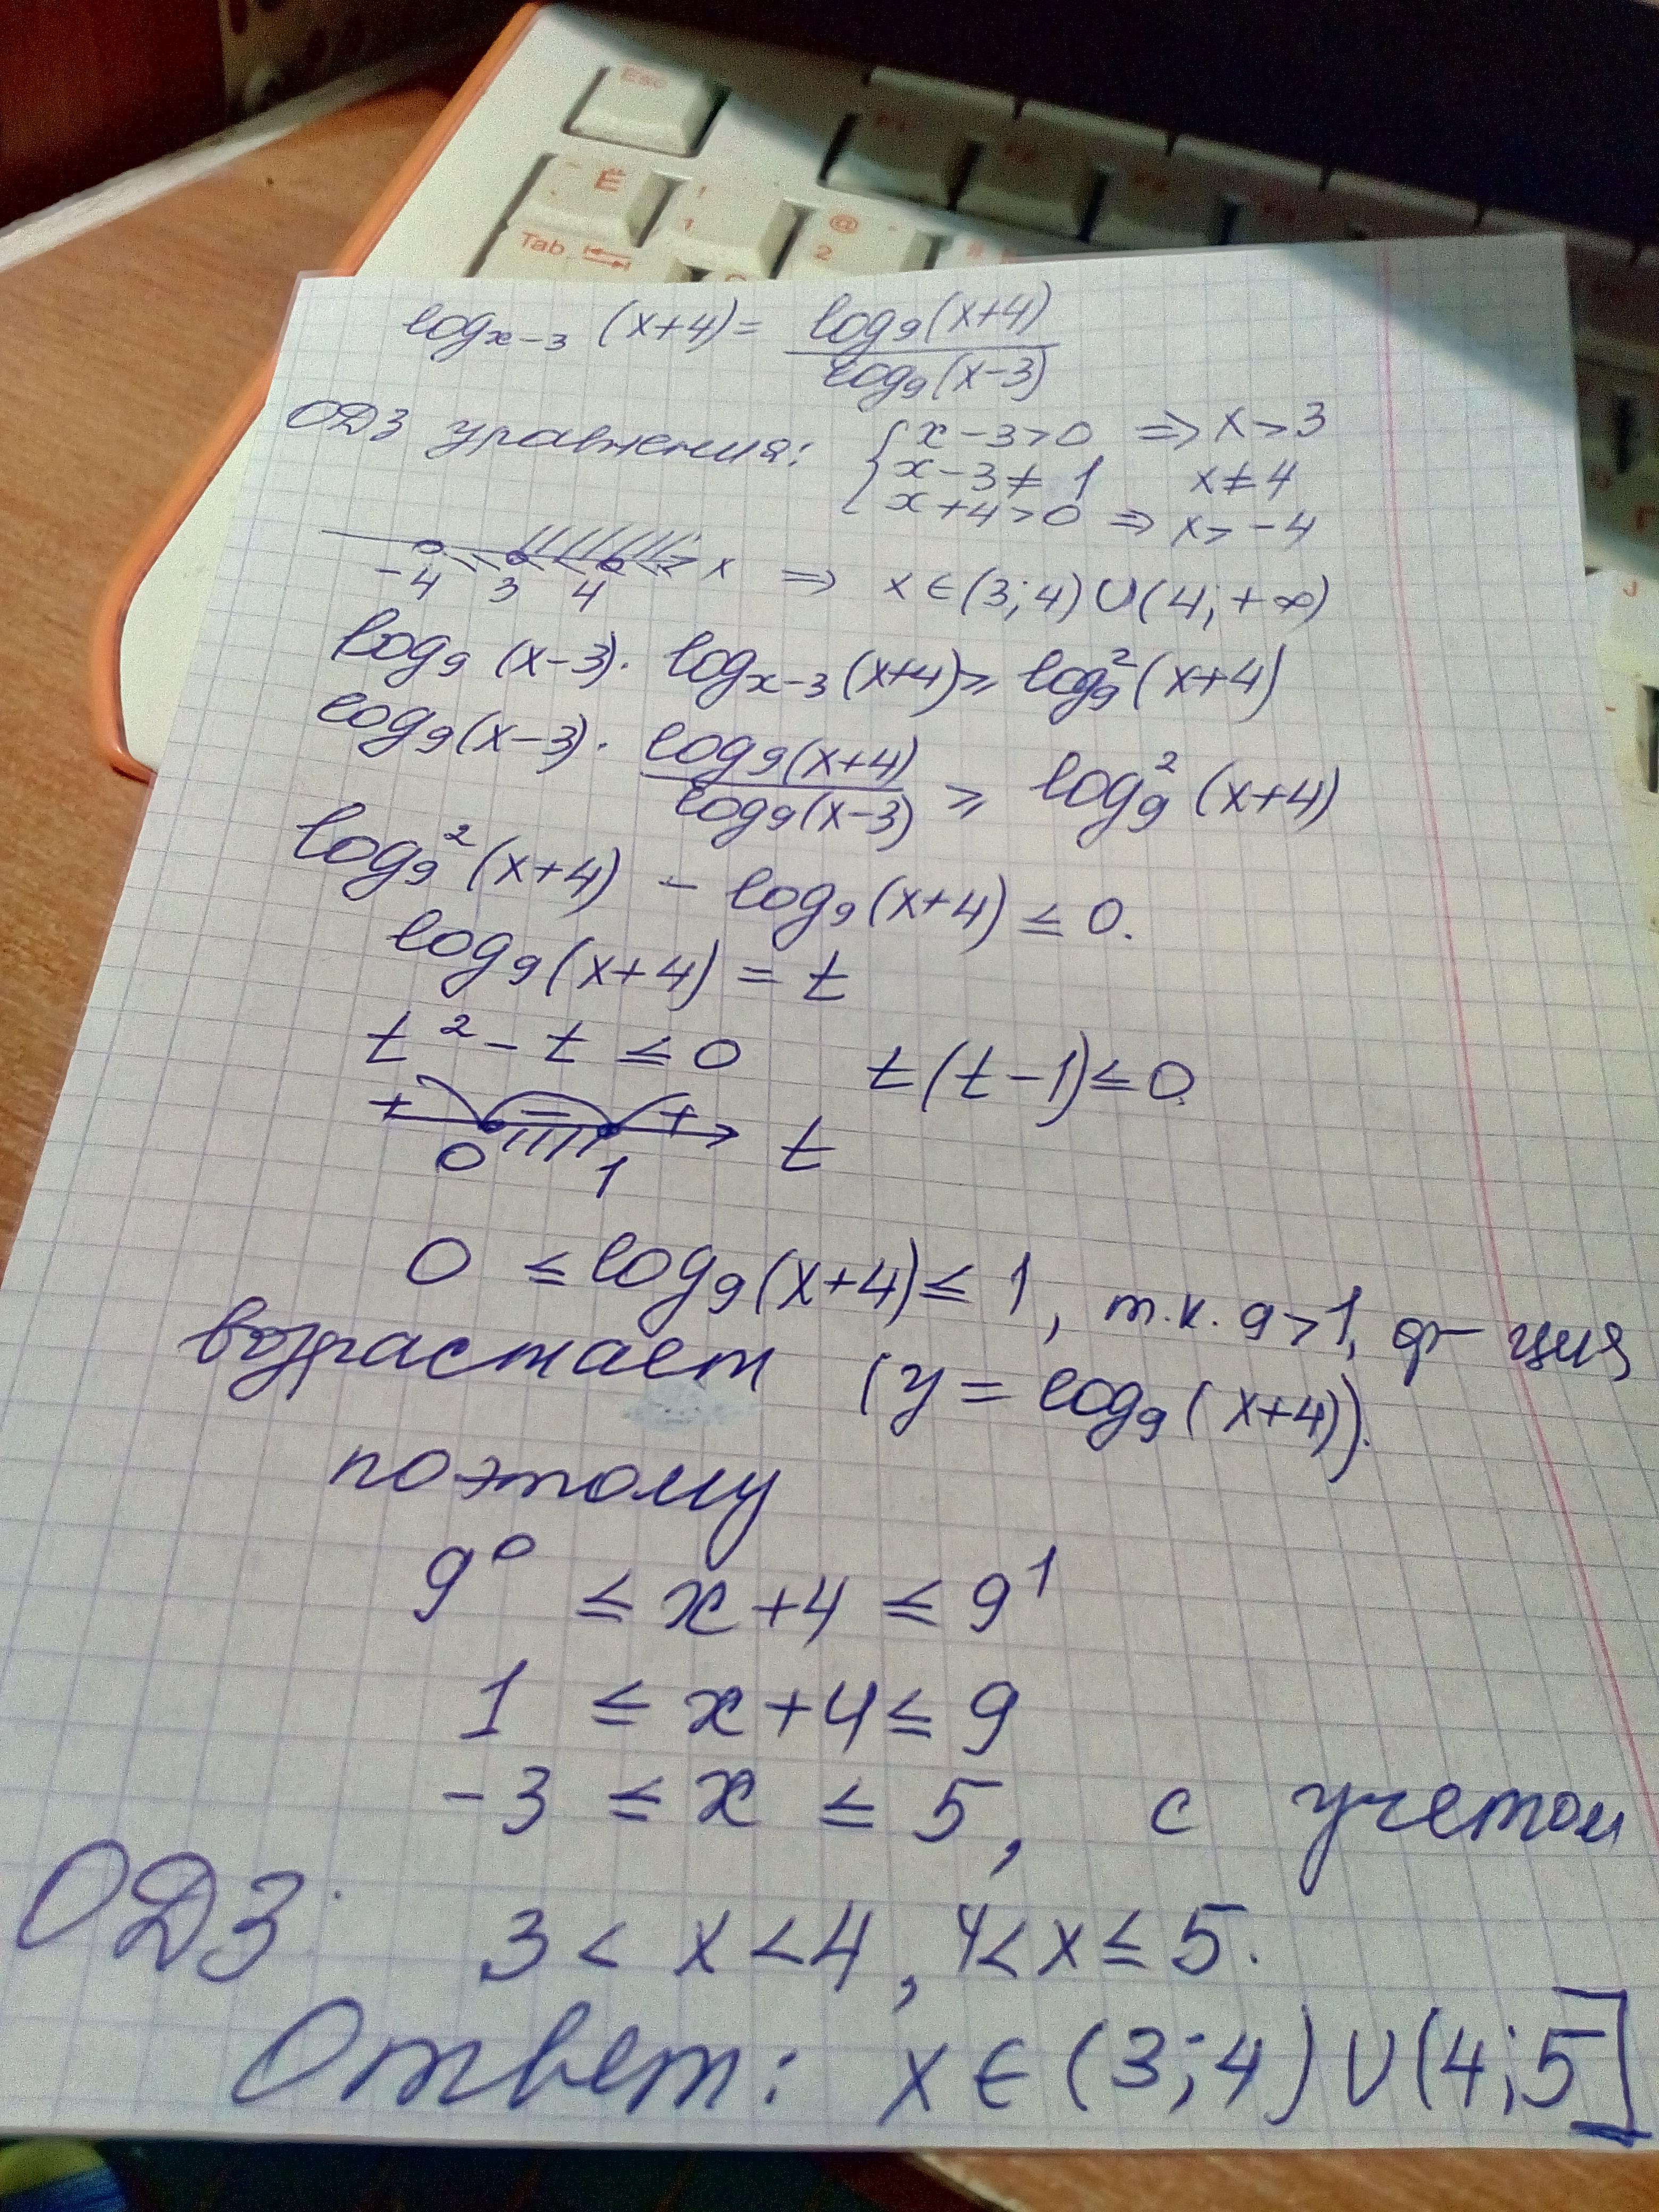 Esc
Ё
!
1
@
2
Tab
log_{x-3} (x+4) = \frac{log_9(x+4)}{log_9(x-3)}
ОДЗ уравнения: { x-3>0 ⇒ x>3
x-3≠1 x≠4
x+4>0 ⇒ x>-4
-4 3 4 x ⇒ x∈(3;4)∪(4;+∞)
log_9 (x-3)· log_{x-3} (x+4) ⩾ log_9^2 (x+4)
log_9(x-3)· \frac{log_9(x+4)}{log_9(x-3)} ⩾ log_9^2 (x+4)
log_9^2 (x+4) - log_9(x+4) ≤ 0.
log_9(x+4) = t
t^2 - t ≤ 0 t(t-1)≤0
+ - + t
0 1
0 ≤ log_9(x+4) ≤ 1, т.к. 9>1, ф-ция
возрастает (y = log_9(x+4)).
поэтому
9^0 ≤ x+4 ≤ 9^1
1 ≤ x+4 ≤ 9
-3 ≤ x ≤ 5, с учетом
ОДЗ: 3 < x < 4, 4 < x ≤ 5.
Ответ: x∈(3;4)∪(4;5]